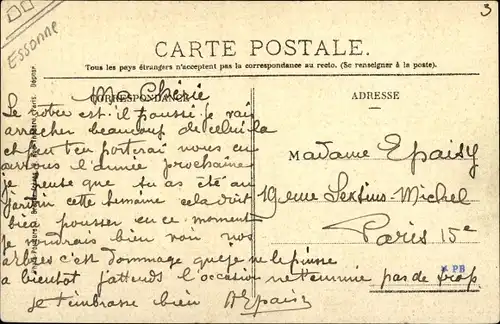 Essonne
3
CARTE POSTALE.
Tous les pays étrangers n'acceptent pas la correspondance au recto. (Se renseigner à la poste).
CORRESPONDANCE
ADRESSE
Ma Chérie
Le notre est-il poussé. je vais
arracher beaucoup de celui la
et peut en porterai nous en
l'année prochaine
je pense que tu as été au
jardin cette semaine cela doit
bien pousser en ce moment
Je voudrais bien voir nos
arbres c'est dommage que je ne le puisse
a bientot j'attends l'occasion ne t'ennuie pas de trop
je t'embrasse bien AEpaisy
Madame Epaisy
19 rue Sextius-Michel
Paris 15e